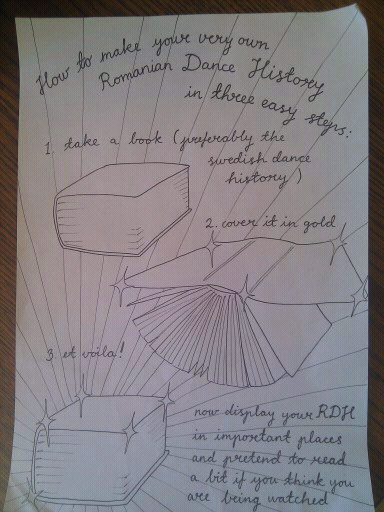 How to make your very own
Romanian Dance History
in three easy steps:
1. take a book (preferably the
swedish dance
history)
2. cover it in gold
3. et voila!
now display your RDH
in important places
and pretend to read
a bit if you think you
are being watched